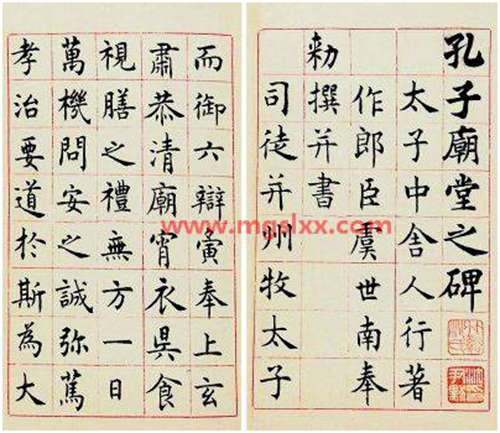 孔子廟堂之碑
太子中舍人行著
作郎臣虞世南奉
勅撰并書
司徒并州牧太子
而御六辯寅奉上玄
肅恭清廟宵衣昃食
視膳之禮無方一日
萬機問安之誠弥篤
孝治要道於斯為大